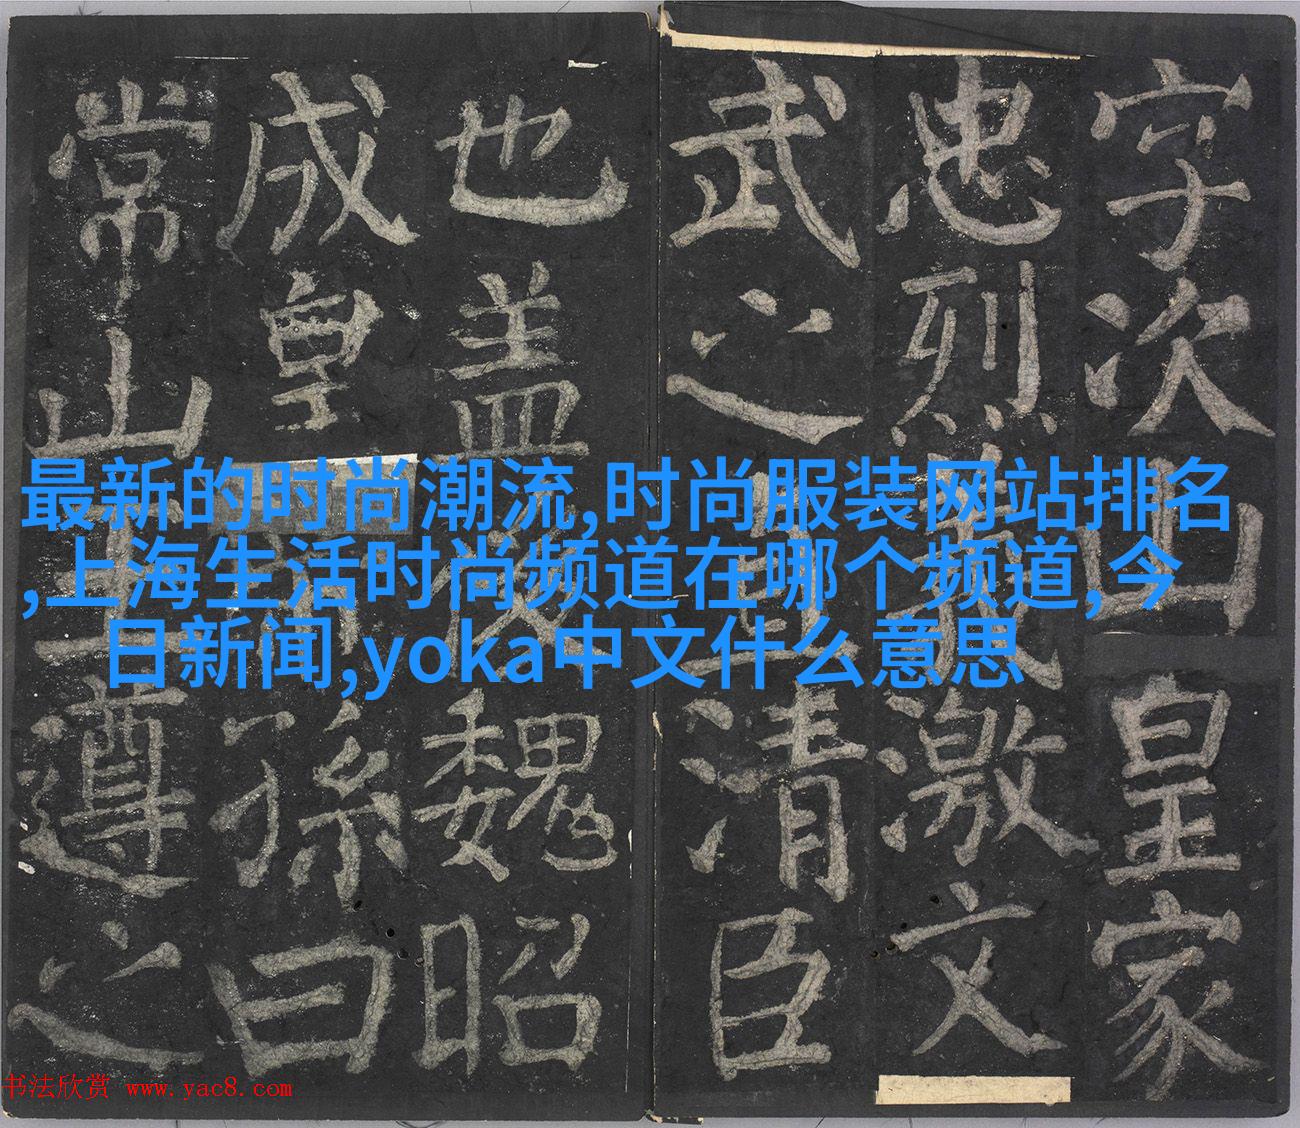 最新的时尚潮流,时尚服装网站排名
,上海生活时尚频道在哪个频道,今
日新闻,yoka中文什么意思
字次山皇家
忠烈激文
武之清臣
也盖魏昭
成皇孫曰
常山遵之
书法欣赏 www.yac8.com